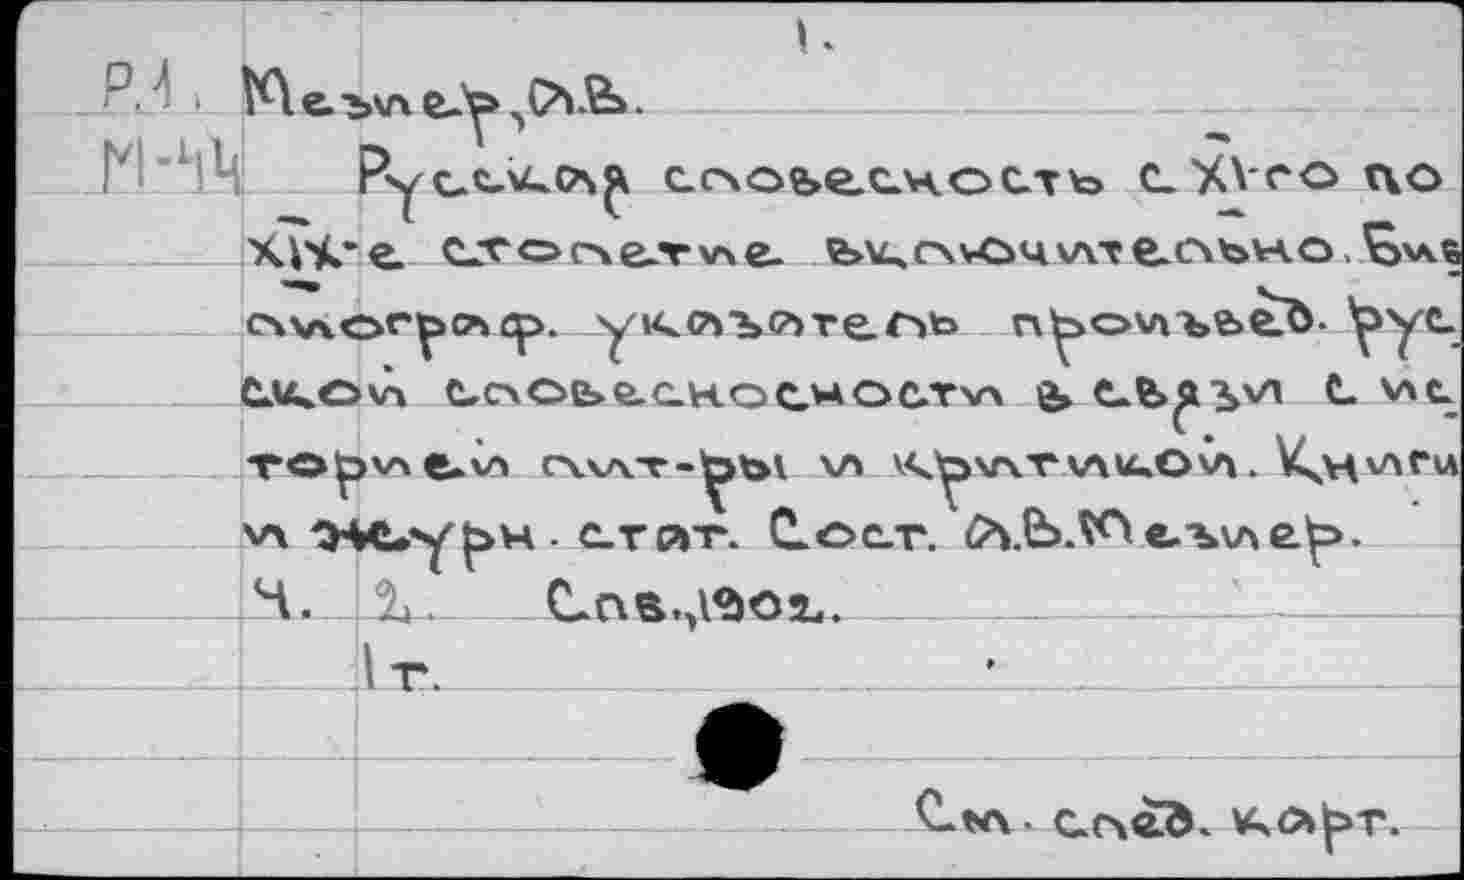 1.
Р.1, Мезиер, А.В.
М-44 Русская словесность с XI-го по
XIX-е столетие включительно. Биб
лиограф. указатель произвед. рус
ской словесносности в связи с ис
ториеи лит-ры и критикой. Книги
и журн. стат. Сост. А.В.Мезиер.
Ч. 2. Спв., 1902.
1 т.
См. след. карт.